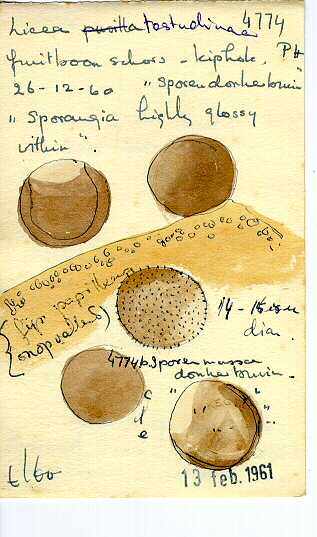 4774
Licea pusilla testudinacea
fruitboom schors - kiphok. PH
26-12-60 "Sporen donkerbruin"
"Sporangia highly glossy
within".
fijn papilleus
onopvallend
14-15 mu
dia.
4774b Sporenmassa
donkerbruin.
c " "
d " "
e " "
E/60
13 feb. 1961